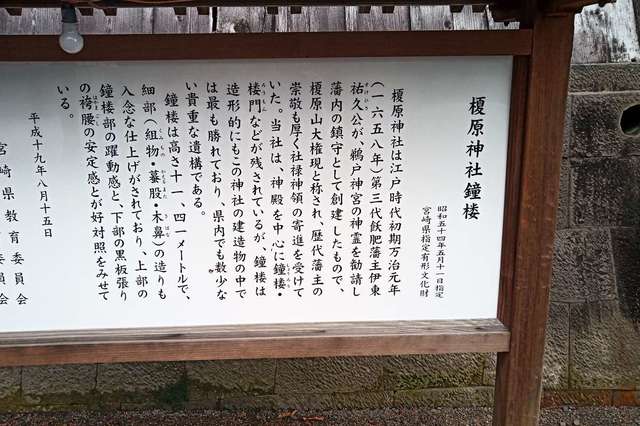 榎原神社鐘楼
昭和五十四年五月十一日指定
宮崎県指定有形文化財
榎原神社は江戸時代初期万治元年
（一六五八年）第三代飫肥藩主伊東
祐久公が、鵜戸神宮の神霊を勧請し
藩内の鎮守として創建したもので、
榎原山大権現と称され、歴代藩主の
崇敬も厚く社禄神領の寄進を受けて
いた。当社は、神殿を中心に鐘楼・
楼門などが残されているが、鐘楼は
造形的にもこの神社の建造物の中で
は最も勝れており、県内でも数少な
い貴重な遺構である。
鐘楼は高さ十一、四一メートルで、
細部（組物・蟇股・木鼻）の造りも
入念な仕上げがされており、上部の
鐘楼部の躍動感と、下部の黒板張り
の袴腰の安定感とが好対照をみせて
いる。
平成十九年八月十五日
宮崎県教育委員会
委員会